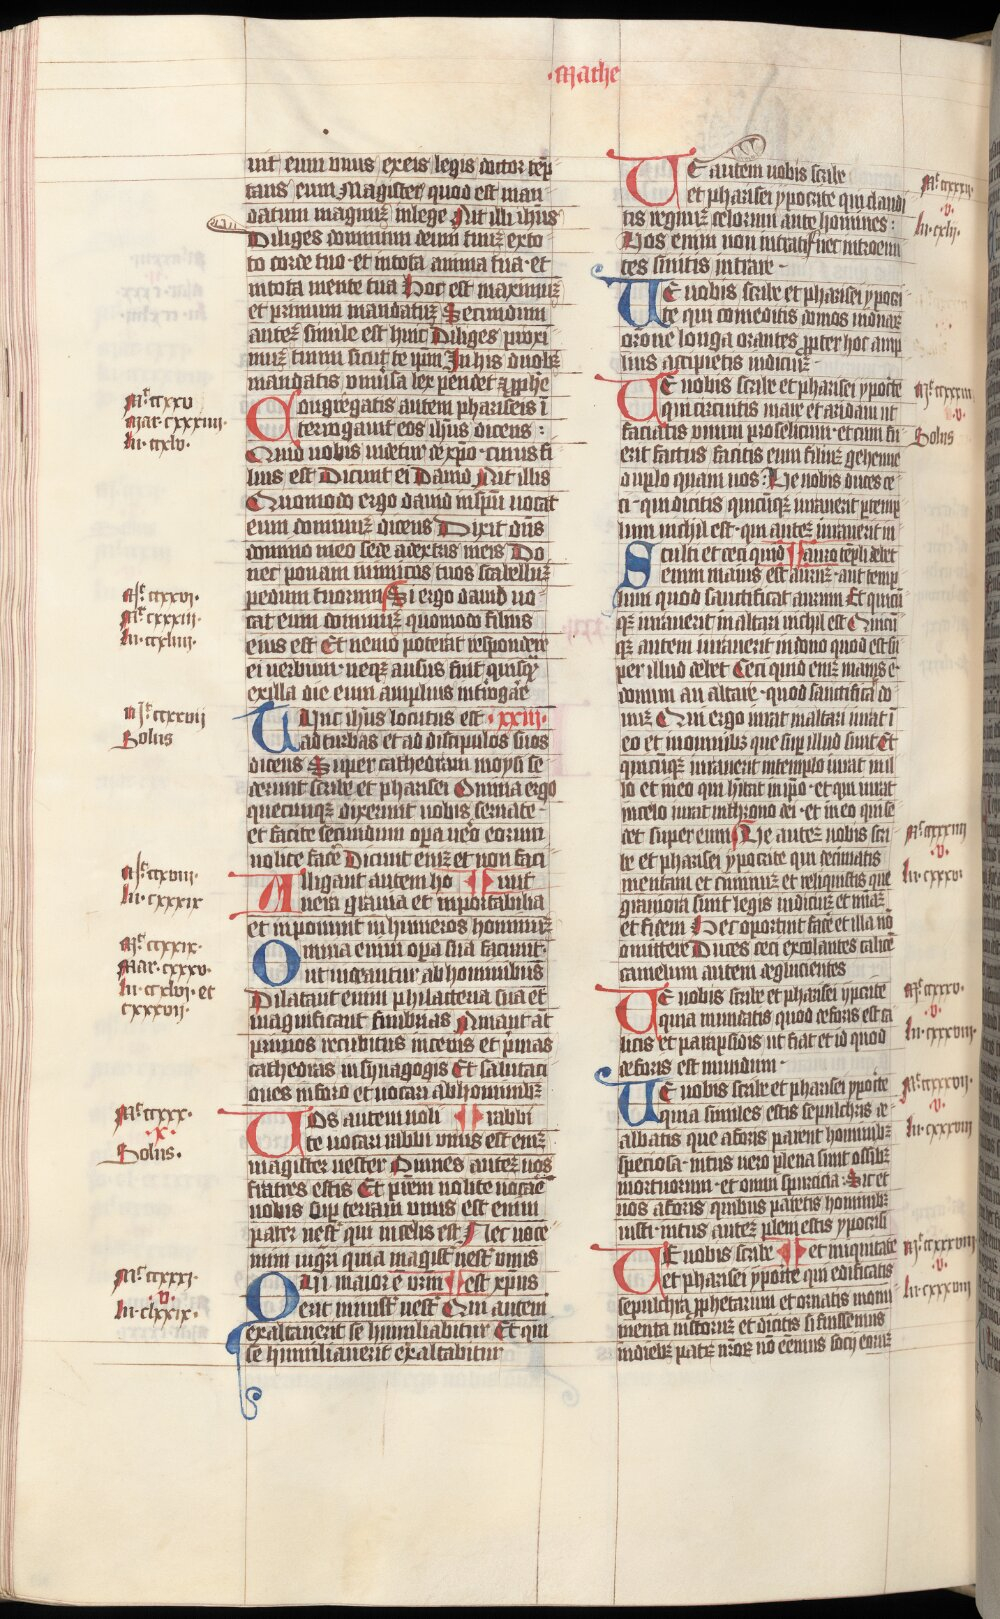 ·Mathe
uit eum unus ex eis legis doctor tēp
tans eum Magister quod est man
datum magnuȝ in lege Ait illi ihus
Diliges dominum deum tuuȝ ex to
to corde tuo · et in tota anima tua · et
in tota mente tua Hoc est maximuȝ
et primum mandatuȝ Secundum
auteȝ simile est huic Diliges proxi
muȝ tuum sicut te ipm̄ In his duobȝ
mandatis uniūsa lex pendet ⁊ ꝓphe
Congregatis autem phariseis ī
terrogauit eos ihūs dicens :
Quid uobis uidetur de xp̄o · cuius fi
lius est Dicunt ei Dauid Ait illis
Quomodo ergo dauid in spū uocat
eum dominuȝ dicens Dixit dn̄s
domino meo sede a dextris meis Do
nec ponam inimicos tuos scabelluȝ
pedum tuorum Si ergo dauid uo
cat eum dominuȝ quomodo filius
eius est Et nemo poterat respondere
ei uerbum · neqȝ ausus fuit quisqȝ
ex illa die eum amplius int̄rogare
Tunc ihus locutus est · xxiii ·
ad turbas et ad discipulos suos
dicens Super cathedram moysi se
derunt scribe et pharisei Omnia ergo
quecunqȝ dixerint uobis seruate ·
et facite secundum opa uero eorum
nolite facē Dicunt eniȝ et non faci
Alligant autem ho unt
nera grauia et inportabilia
et inponunt in humeros hominuȝ
Omnia enim opa sua faciunt ·
ut uideantur ab hominibus
Dilatant enim philacteria sua et
magnificant fimbrias Amant āt
primos recubitus in cenis et p̄mas
cathedras in synagogis Et salutaci
ones in foro et uocari ab hominibȝ
Uos autem noli rabbi
te uocari rabbi unus est eniȝ
magister uester Omnes auteȝ uos
fratres estis Et p̄rem nolite uocare
uobis sup terram unus est enim
pater uesȶ qui in celis est Nec uoce
mini mgr̄i quia magisȶ uesȶ unus
Qui maior ē urm̄ est xp̄us
erit minisȶ uesȶ Qui autem
exaltauerit se humiliabitur Et qui
se humiliauerit exaltabitur
Ue autem uobis scribe
et pharisei ypocrite qui claudi
tis regnuȝ celorum ante homines :
Uos enim non intratis nec introeun
tes sinitis intrare ·
Ue uobis scribe et pharisei ypocri
te qui comeditis domos uiduaȝ
or̄one longa orantes ꝓpter hoc amp
lius accipietis iudiciuȝ
Ue uobis scribe et pharisei ypocrite
qui circuitis mare et aridam ut
faciatis unum proselitum · et cum fu
erit factus facitis eum filiuȝ gehenne
duplo quam uos : Ue uobis duces ce
ci · qui dicitis quicūqȝ iurauerit ꝑ temp
lum nichil est · qui auteȝ iurauerit in
Stulti et ceci quid auro tēpli debet
enim maius est auruȝ · aut temp
lum quod sanctificat aurum Et quicū
qȝ iurauerit in altari nichil est Quicū
qȝ autem iurauerit in dono quod est su
per illud debet Ceci quid eniȝ maius ē ·
donum an altare · quod sanctificat do
nuȝ Qui ergo iurat in altari iurat ī
eo et in omnibȝ que sup illud sunt Et
quicūqȝ iurauerit in templo iurat in il
lo et in eo qui hītat in ip̄o · et qui iurat
in celo iurat in throno dei · et in eo qui se
det super eum Ue auteȝ uobis scri
be et pharisei ypocrite qui decimatis
mentam et cuminuȝ et reliquistis que
grauiora sunt legis iudiciuȝ et mīaȝ
et fidem Hec oportuit facē et illa nō
omittere Duces ceci excolantes culicē
camelum autem deglucientes
Ue uobis scribe et pharisei ypcrite
quia mundatis quod deforis est ca
licis et parapsidis ut fiat et id quod
deforis est mundum ·
Ue uobis scribe et pharisei ypocite
quia similes estis sepulchris de
albatis que aforis parent hominibȝ
speciosa · intus uero plena sunt ossibȝ
mortuorum · et omni spurcicia : Sic et
uos aforis quidus paretis hominibȝ
iusti · intus auteȝ pleni estis ypocrisi
Ue uobis scribe et iniquitate
et pharisei ypocite qui edificatis
sepulchra ꝓphetarum et ornatis monu
menta iustoruȝ et dicitis si fuissemus
in diebȝ patrȝ nr̄orȝ nō eēmus socij eoruȝ
Mͭ ccxxv
Mar · cxxxiiii ·
lu · ccxlv ·
Mͭ ccxxvi ·
Mͬ ccxxxiii ·
lu · ccxliiii ·
Mͭ ccxxvii
Solus
Mͭ ccxviii ·
lu · cxxxix
Mͭ ccxxix ·
Mar · cxxxv ·
lu · ccxlvi · et
cxxxvij ·
Mͭ ccxxx ·
· x ·
Solus ·
Mͭ ccxxxi ·
· v ·
lu · clxxix ·
· v ·
lu · cxlii ·
Mͭ ccxxxiii
· v ·
Solus
Mͭ ccxxxiiii
· v ·
lu · cxxxvi ·
Mͭ ccxxxv ·
· v ·
lu · cxxxviii ·
Mͭ ccxxxvij ·
· v ·
lu · cxxxviii
Mͭ ccxxxviii
· v ·
lu · cxxxviiii